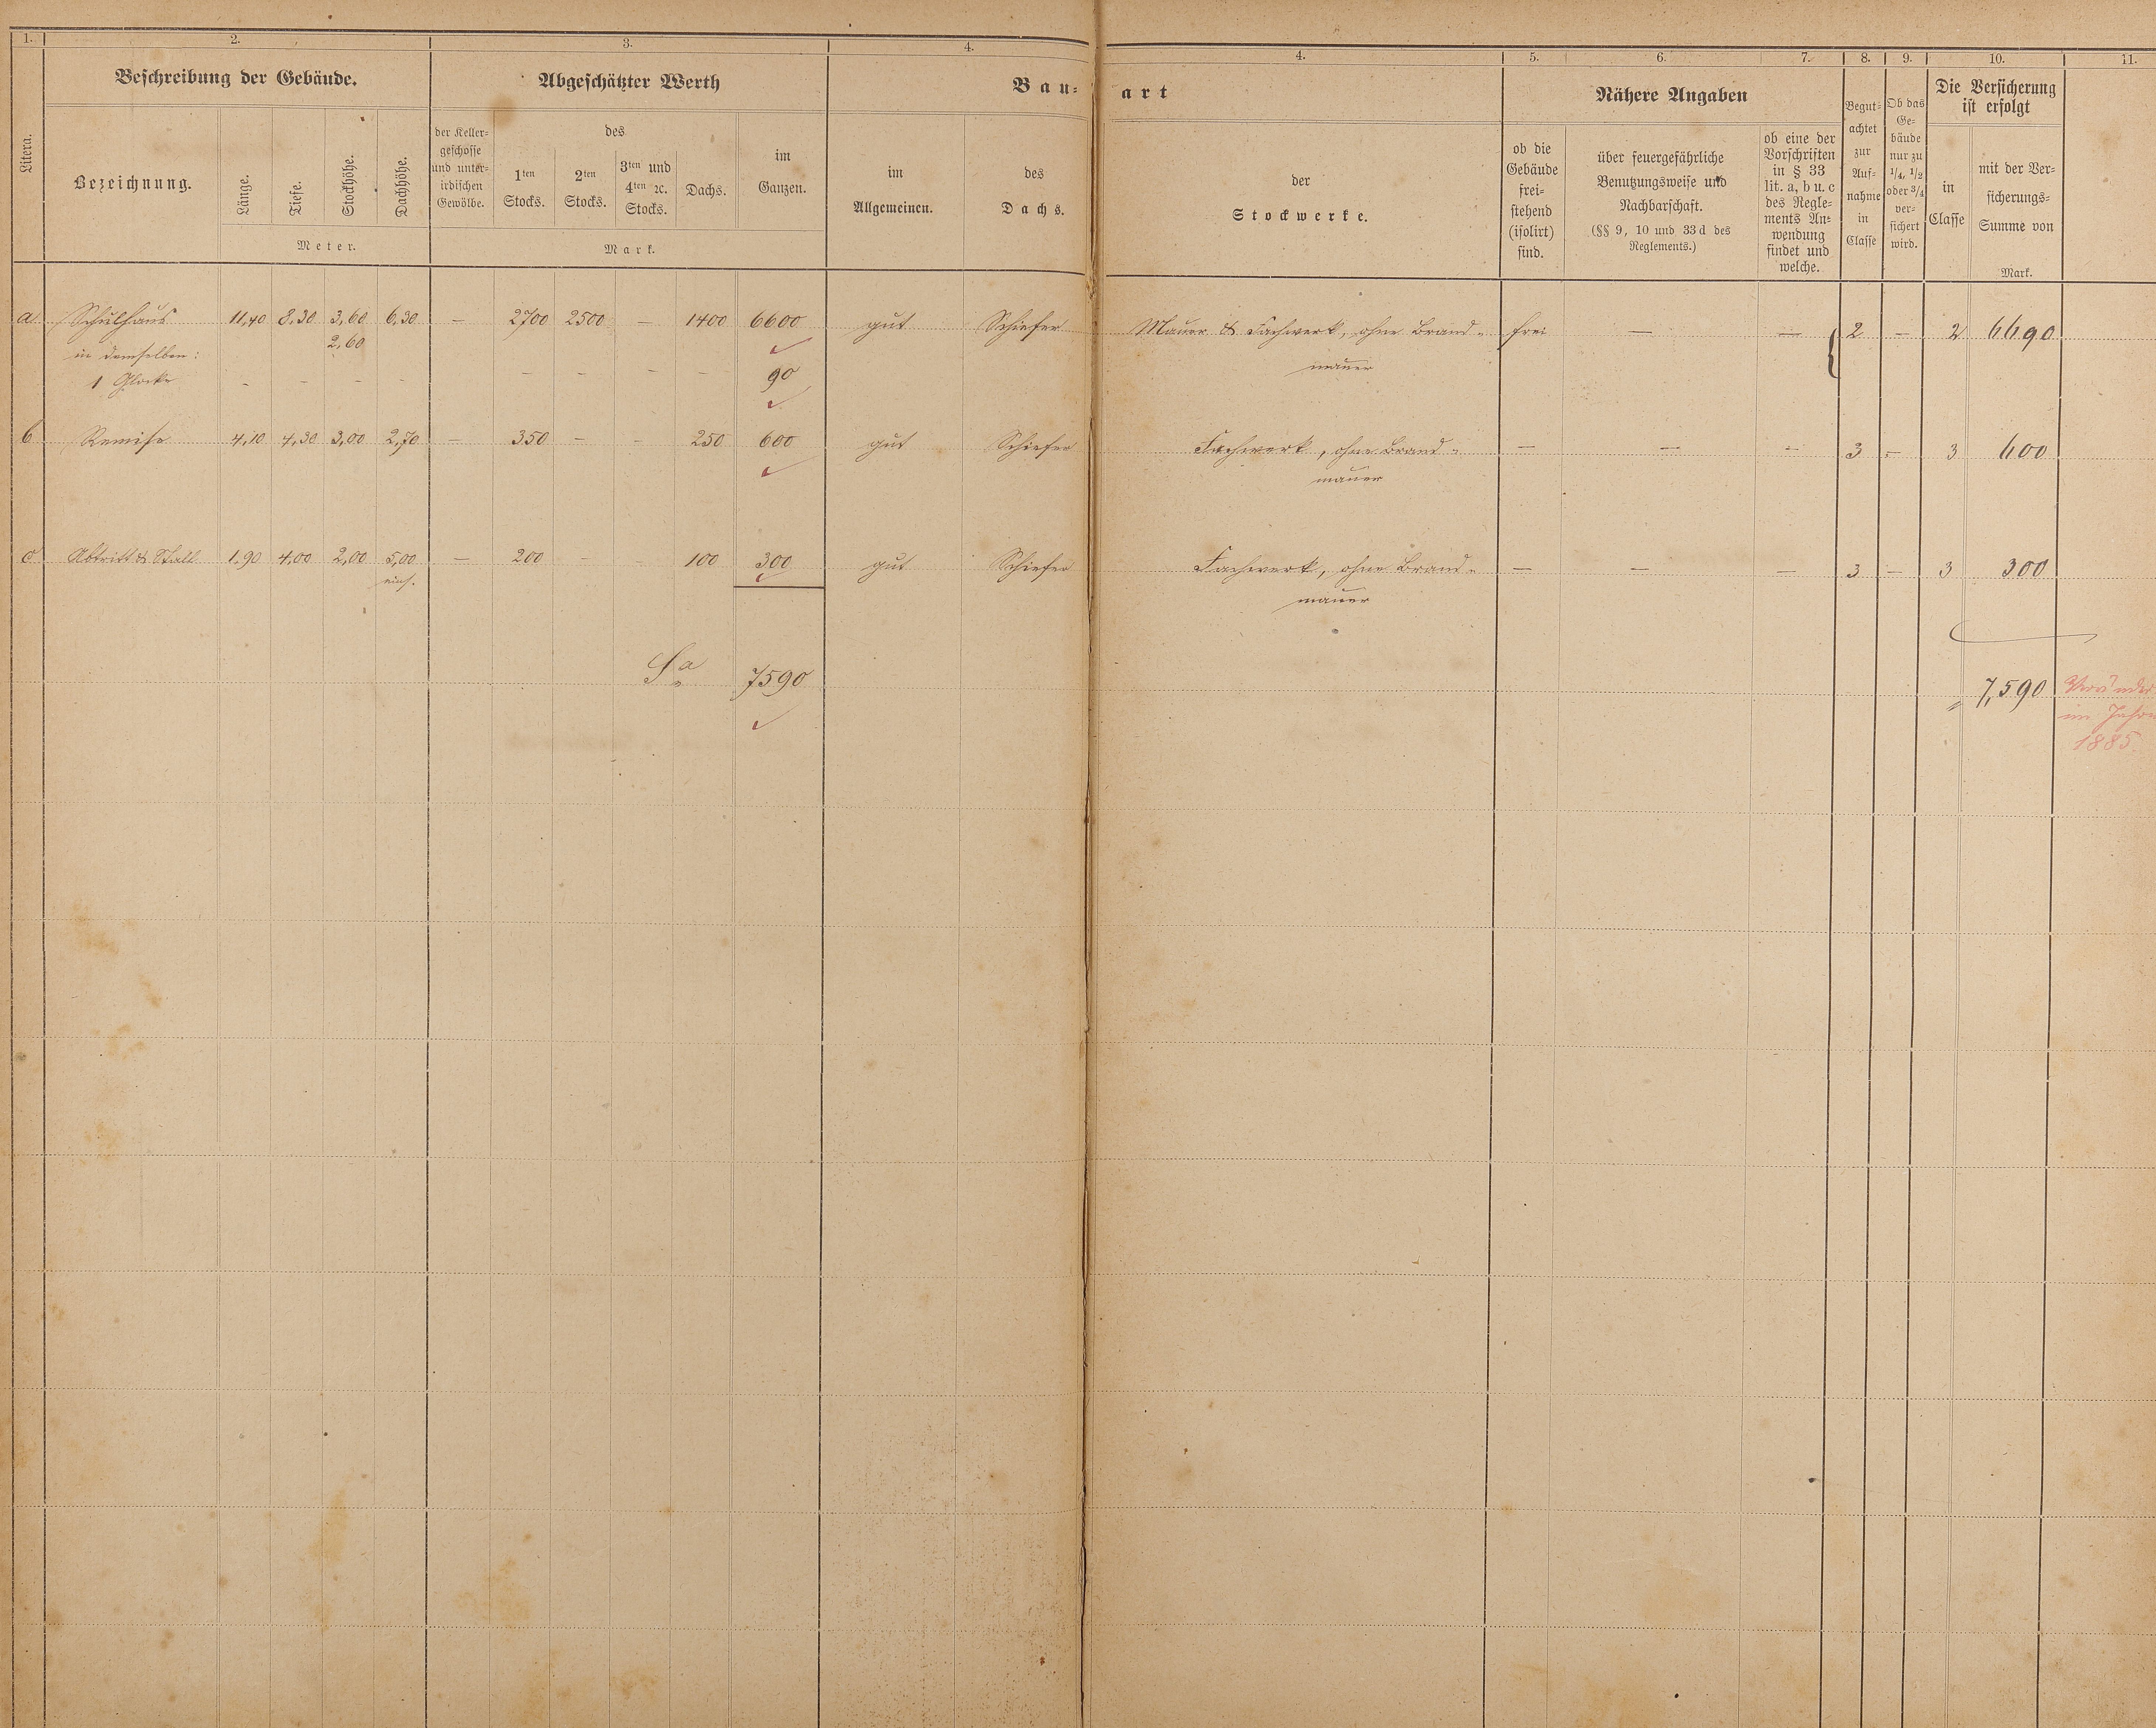 1. 2. 3. 4. 4. 5. 6. 7. 8. 9. 10. 11.
Beschreibung der Gebäude. Abgeschätzter Werth Bau- art Nähere Angaben Die Versicherung
ist erfolgt
Litera.
Bezeichnung.
Länge.
Tiefe.
Stockhöhe.
Dachhöhe.
Meter.
der Keller-
geschosse
und unter-
irdischen
Gewölbe.
des
1ten
Stocks.
2ten
Stocks.
3ten und
4ten ꝛc.
Stocks.
Dachs.
im
Ganzen.
Mark.
im
Allgemeinen.
des
Dachs.
der
Stockwerke.
ob die
Gebäude
frei-
stehend
(isolirt)
sind.
über feuergefährliche
Benutzungsweise und
Nachbarschaft.
(§§ 9, 10 und 33 d des
Reglements.)
ob eine der
Vorschriften
in § 33
lit. a, b u. c
des Regle-
ments An-
wendung
findet und
welche.
Begut-
achtet
zur
Auf-
nahme
in
Classe
Ob das
Ge-
bäude
nur zu
1/4, 1/2
oder 3/4
ver-
sichert
wird.
in
Classe
mit der Ver-
sicherungs-
Summe von
Mark.
a Schulhaus 11,40 8,30 3,60 6,30 — 2700 2500 — 1400 6600 gut Schiefer Mauer & Fachwerk, ohne Brand- frei — — 2 — 2 6690
in demselben: 2,60 mauer
1 Glocke - - - - — — — — 90
b Remise 4,10 4,30 3,00 2,70 — 350 — — 250 600 gut Schiefer Fachwerk, ohne Brand- — — — 3 — 3 600
mauer
c Abtritt & Stall 1,90 4,00 2,00 5,00 — 200 — — 100 300 gut Schiefer Fachwerk, ohne Brand- — — — 3 — 3 300
einh. mauer
Sa 7590 7,590
im
1885.